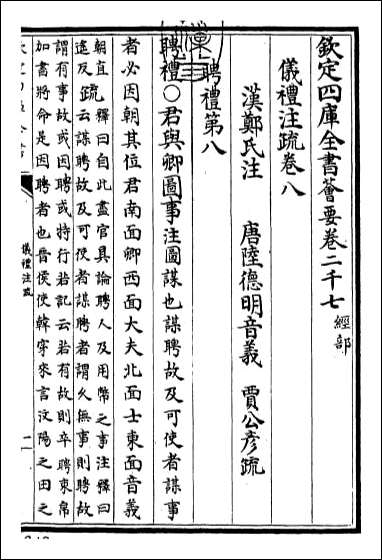 欽定四庫全書薈要卷二千七 經部
儀禮注疏卷八
漢鄭氏注 唐陸德明音義 賈公彥疏
聘禮第八
聘禮○君與卿圖事注圖謀也謀聘故及可使者謀事
者必因朝其位君南面卿西面大夫北面士東面音義
朝直
遙反疏釋曰自此盡官具論聘人及用幣之事注釋曰
云謀聘故及可使者謀聘者謂久無事則聘故
謂有事故或因聘或特行若記云若有故則卒聘束帛
加書將命是因聘者也晉侯使韓穿來言汶陽之田之
儀禮注疏